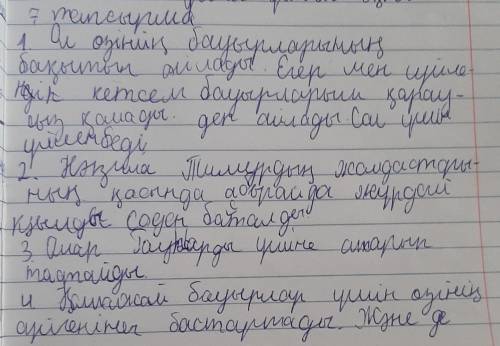 7 тапсырма
1. Ол өзінің бауырларының
бақытын ойлады. Егер мен үйле-
ніп кетсем бауырларым қарау-
сыз қалады. деп ойлады. Сол үшін
үйленбеді
2. Назыма Тимурдың жолдастары-
ның қасында абырайда жүрдей
қылды содан бат алды
3. Омар Гауһарды үйіне апарып
тастайды
4 Қамажай бауырлар үшін өзінің
сүйгенінен бастартады. Және де